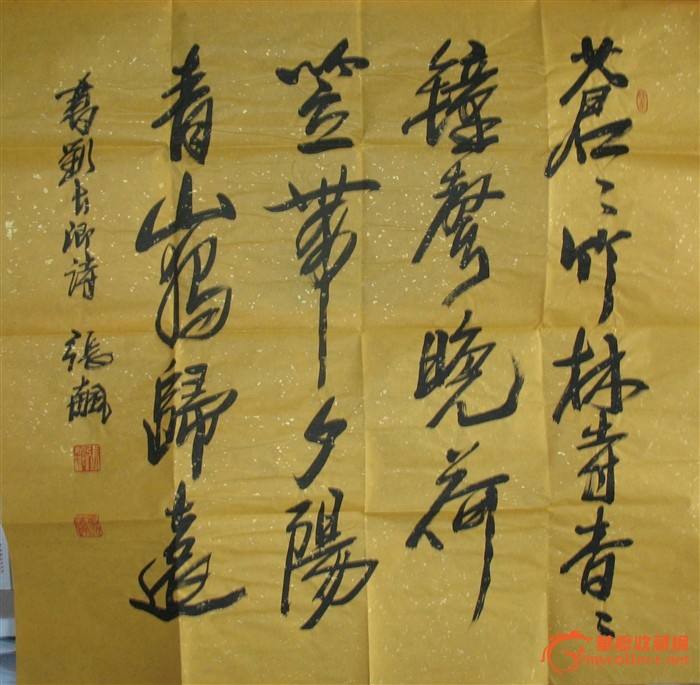 蒼〻竹林寺杳〻
鐘聲晚荷
笠帶夕陽
青山獨歸遠
書劉長卿詩 張飆
華夏收藏網
mycollect.net